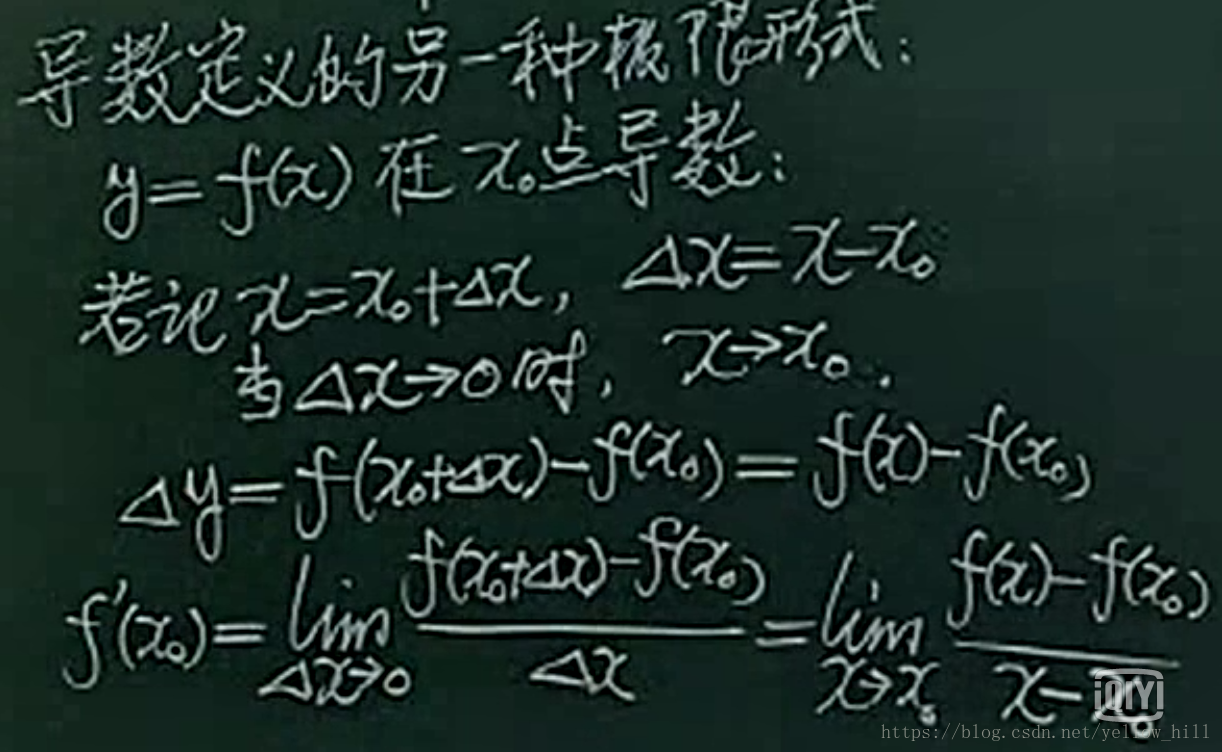 导数定义的另一种极限形式：
y=f(x) 在 x₀点导数：
若记 x=x₀+Δx， Δx=x-x₀
当Δx→0时， x→x₀.
Δy=f(x₀+Δx)-f(x₀)=f(x)-f(x₀)
f'(x₀)=lim_{Δx→0} (f(x₀+Δx)-f(x₀))/Δx =lim_{x→x₀} (f(x)-f(x₀))/(x-x₀)
iQIYI
https://blog.csdn.net/yellow_hill